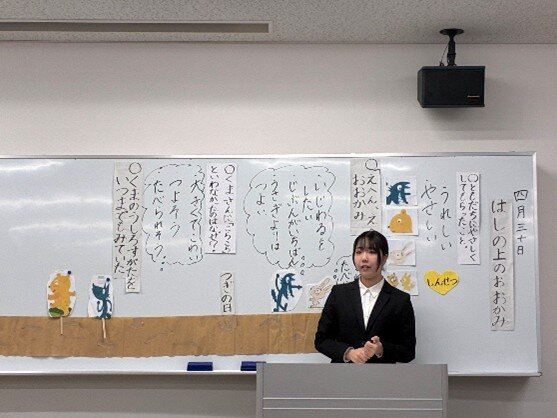 四月三十日
はしの上のおおかみ
○ともだちにやさしく
してもらったこと。
うれしい
やさしい
しんせつ
○えへん、え
おおかみ
いじわるを
したい
じぶんがいちばん
うさぎよりは
つよい
つぎの日
○くまさんに
といわなかったのはなぜ?
大きくてこわい
つよそう
たべられそう
○くまのうしろすがたを
いつまでもみていた